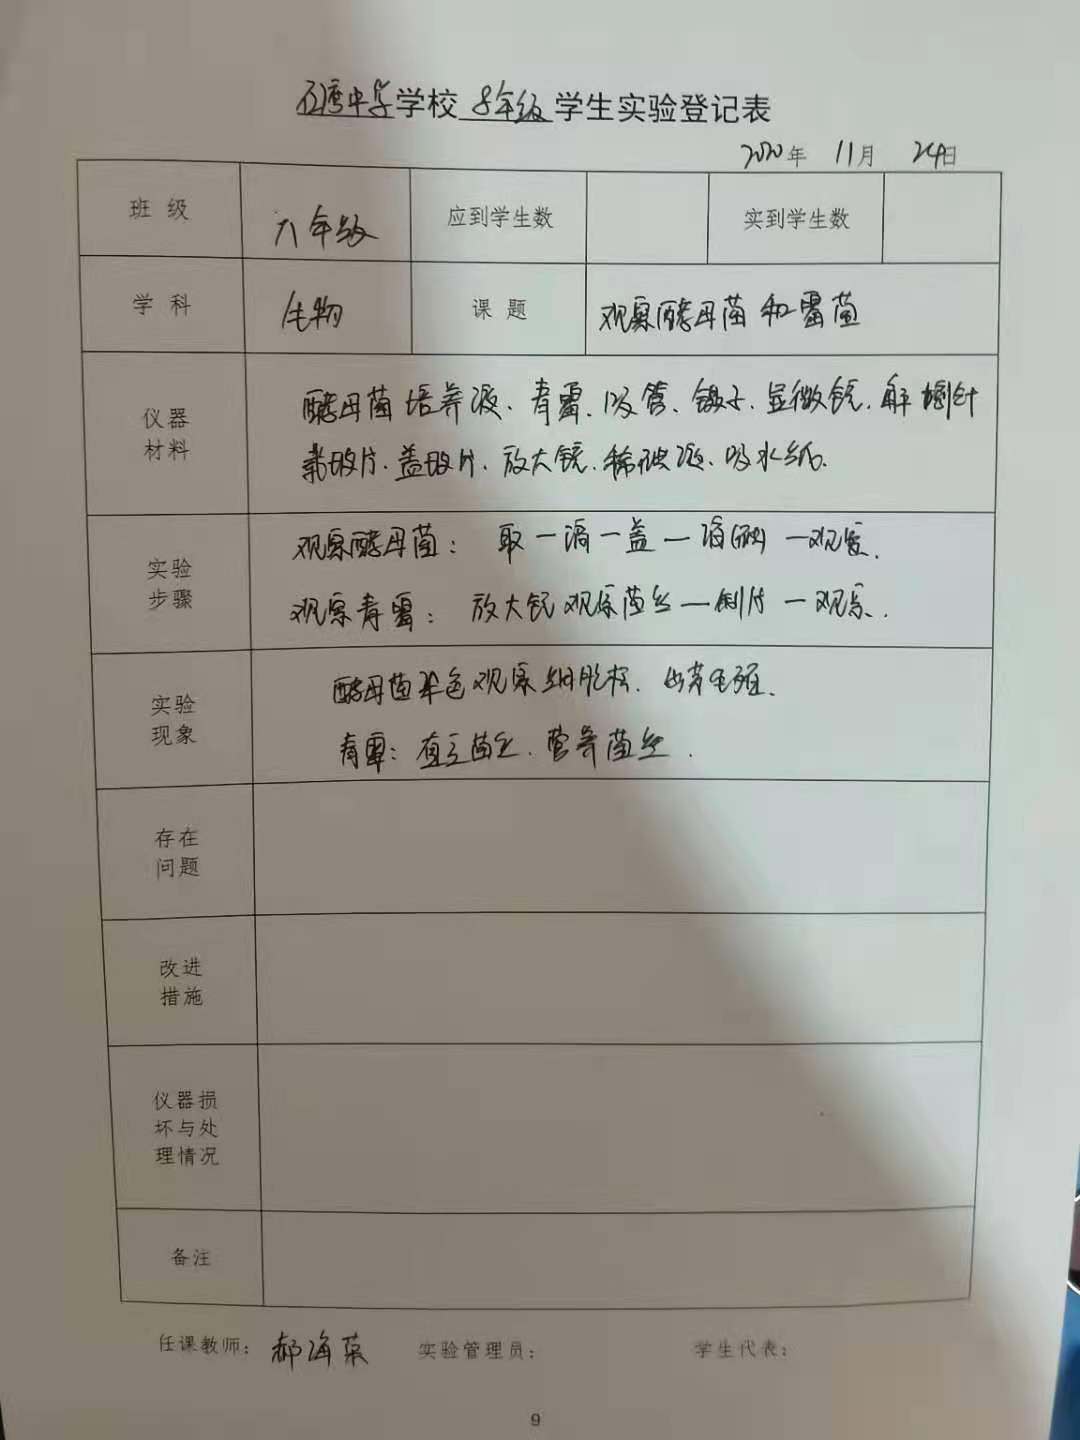 中学学校 8年级 学生实验登记表
2020年 11月 24日
班 级 八年级 应到学生数 实到学生数
学 科 生物 课 题 观察酵母菌和霉菌
仪器
材料
酵母菌培养液、青霉、吸管、镊子、显微镜、解剖针
载玻片、盖玻片、放大镜、稀碘液、吸水纸.
实验
步骤
观察酵母菌: 取一滴一盖一滴碘一观察.
观察青霉: 放大镜观察菌丝一制片一观察.
实验
现象
酵母菌染色观察细胞核、出芽生殖.
青霉: 直立菌丝、营养菌丝.
存在
问题
改进
措施
仪器损
坏与处
理情况
备注
任课教师: 郝海荣 实验管理员: 学生代表:
9